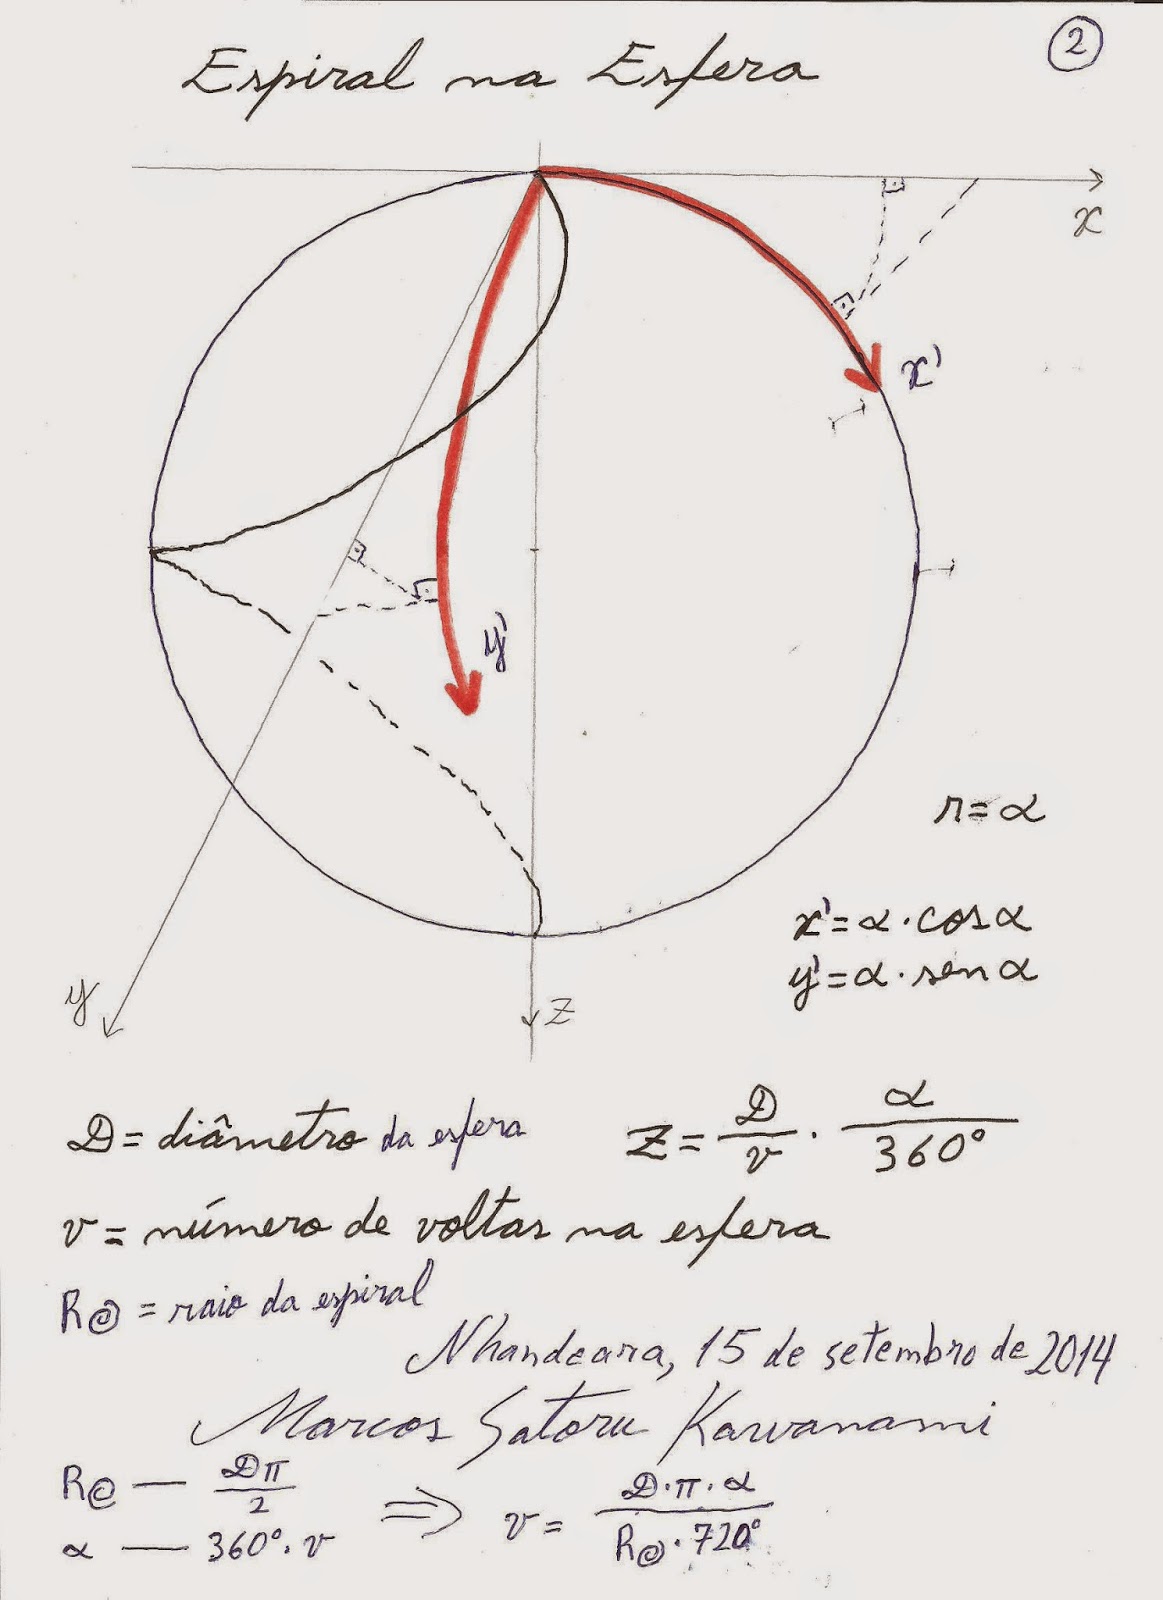 2
Espiral na Esfera
x
x'
y'
r = α
x' = α · cos α
y' = α · sen α
y
z
D = diâmetro da esfera
Z = D/v · α/360°
v = número de voltas na esfera
R@ = raio da espiral
Nhandeara, 15 de setembro de 2014
Marcos Satoru Kawanami
R@ — Dπ/2
α — 360° · v
⇒ v = D·π·α/R@·720°